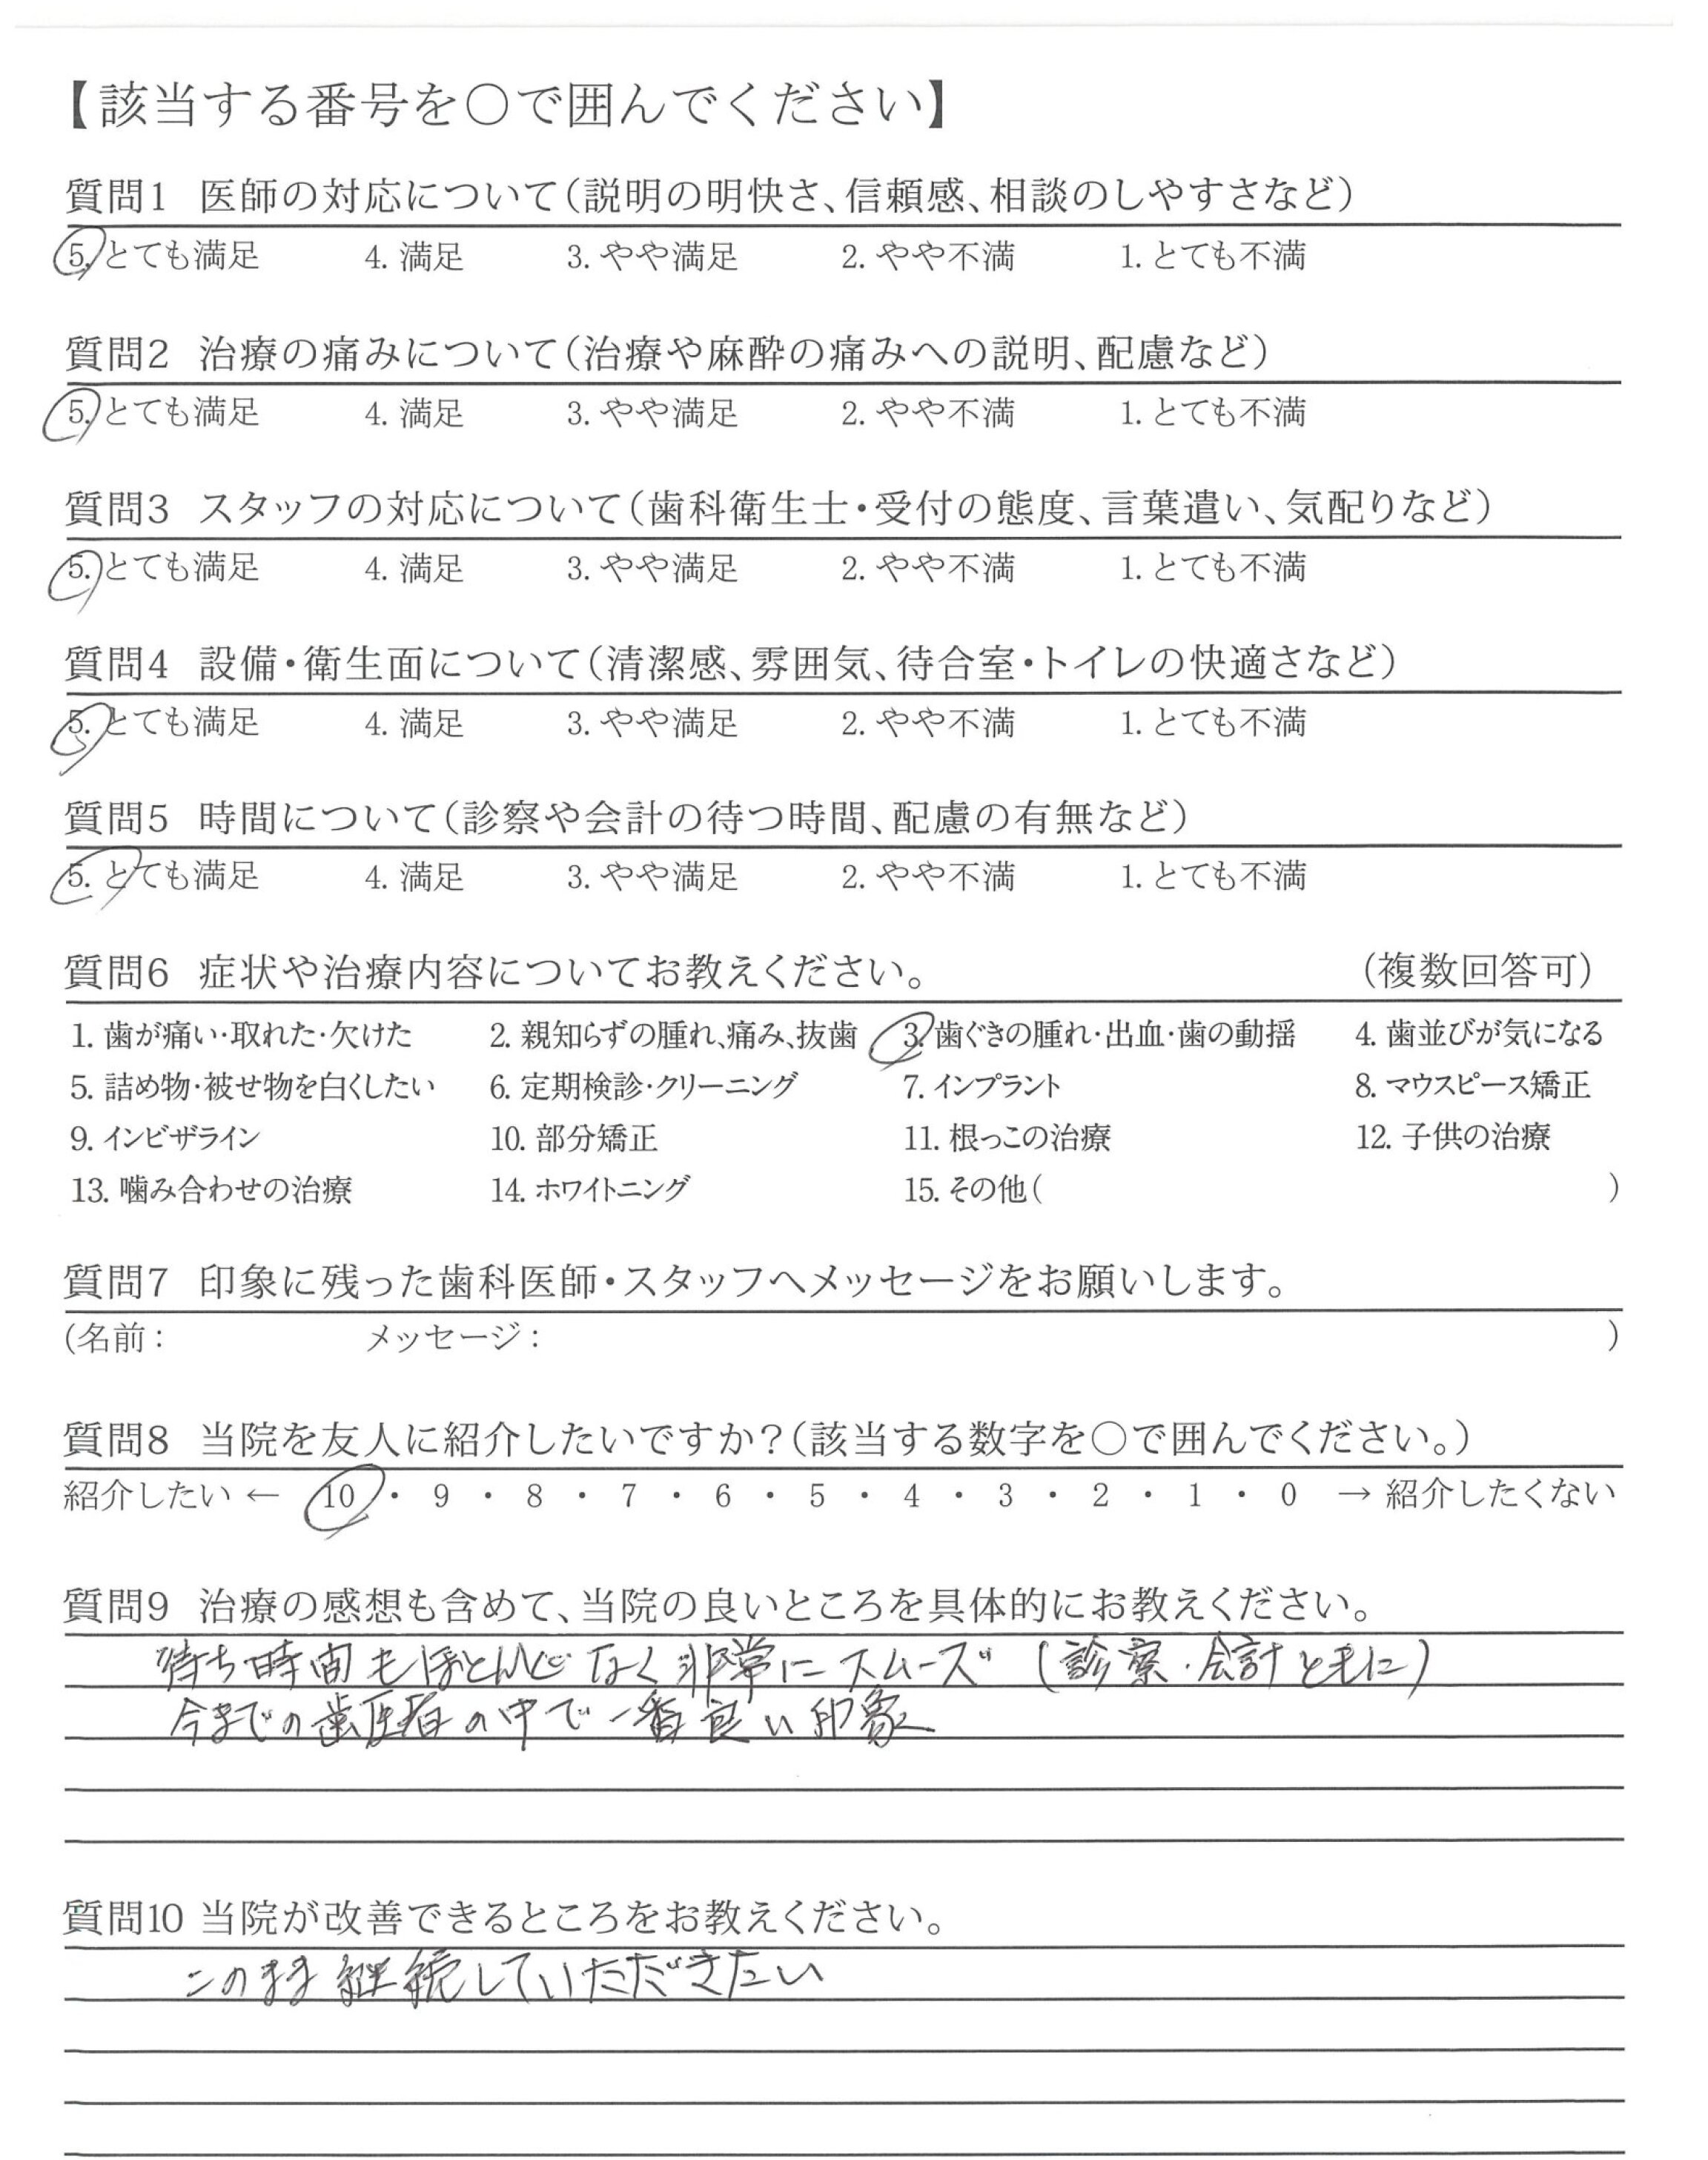 【該当する番号を〇で囲んでください】
質問1 医師の対応について(説明の明快さ、信頼感、相談のしやすさなど)
5. とても満足 4. 満足 3. やや満足 2. やや不満 1. とても不満
質問2 治療の痛みについて(治療や麻酔の痛みへの説明、配慮など)
5. とても満足 4. 満足 3. やや満足 2. やや不満 1. とても不満
質問3 スタッフの対応について(歯科衛生士・受付の態度、言葉遣い、気配りなど)
5. とても満足 4. 満足 3. やや満足 2. やや不満 1. とても不満
質問4 設備・衛生面について(清潔感、雰囲気、待合室・トイレの快適さなど)
5. とても満足 4. 満足 3. やや満足 2. やや不満 1. とても不満
質問5 時間について(診察や会計の待つ時間、配慮の有無など)
5. とても満足 4. 満足 3. やや満足 2. やや不満 1. とても不満
質問6 症状や治療内容についてお教えください。 (複数回答可)
1. 歯が痛い・取れた・欠けた 2. 親知らずの腫れ、痛み、抜歯 3. 歯ぐきの腫れ・出血・歯の動揺 4. 歯並びが気になる
5. 詰め物・被せ物を白くしたい 6. 定期検診・クリーニング 7. インプラント 8. マウスピース矯正
9. インビザライン 10. 部分矯正 11. 根っこの治療 12. 子供の治療
13. 噛み合わせの治療 14. ホワイトニング 15. その他( )
質問7 印象に残った歯科医師・スタッフへメッセージをお願いします。
(名前: メッセージ: )
質問8 当院を友人に紹介したいですか?(該当する数字を〇で囲んでください。)
紹介したい ← 10 ・ 9 ・ 8 ・ 7 ・ 6 ・ 5 ・ 4 ・ 3 ・ 2 ・ 1 ・ 0 → 紹介したくない
質問9 治療の感想も含めて、当院の良いところを具体的にお教えください。
待ち時間もほとんどなく非常にスムーズ(診察・会計ともに)
今までの歯医者の中で一番良い印象
質問10 当院が改善できるところをお教えください。
このまま継続していただきたい